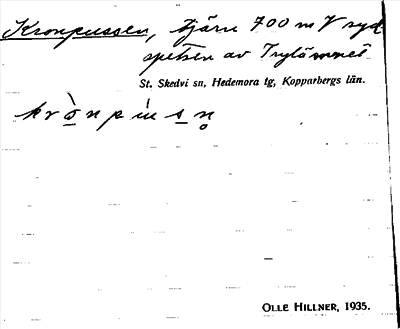 Kronpussen, tjärn 700 m V syd
spetsen av Trylämnet
St. Skedvi sn, Hedemora tg, Kopparbergs län.
OLLE HILLNER, 1935.